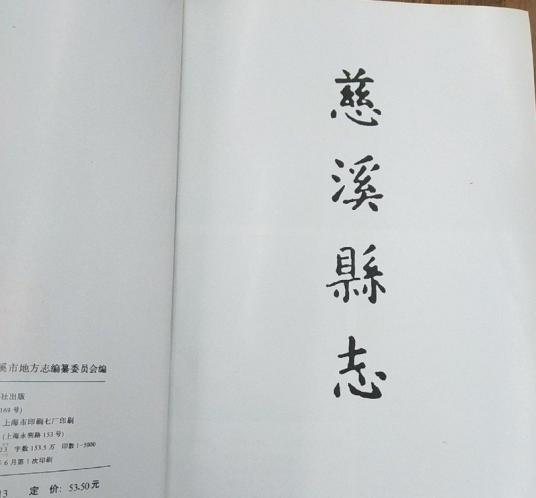 慈溪縣志
溪市地方志编纂委员会编
社出版
169号)
上海市印刷七厂印刷
(上海永嘉路153号)
字数153.5万 印数1-5000
年6月第1次印刷
13 定价: 53.50元